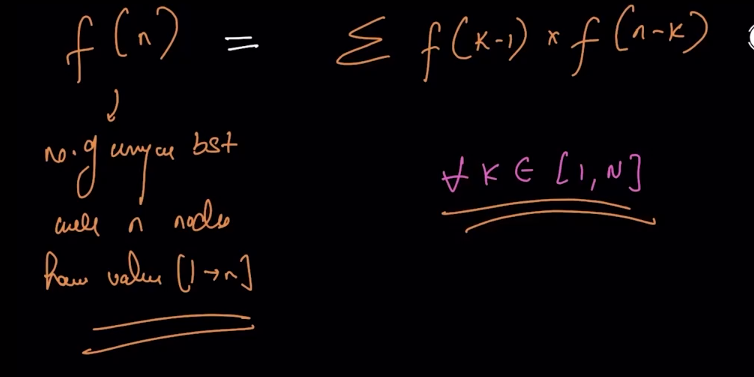 f(n) = Σ f(k-1) * f(n-k)
no. of unique bst
with n nodes
from value [1→n]
∀ K ∈ [1, N]